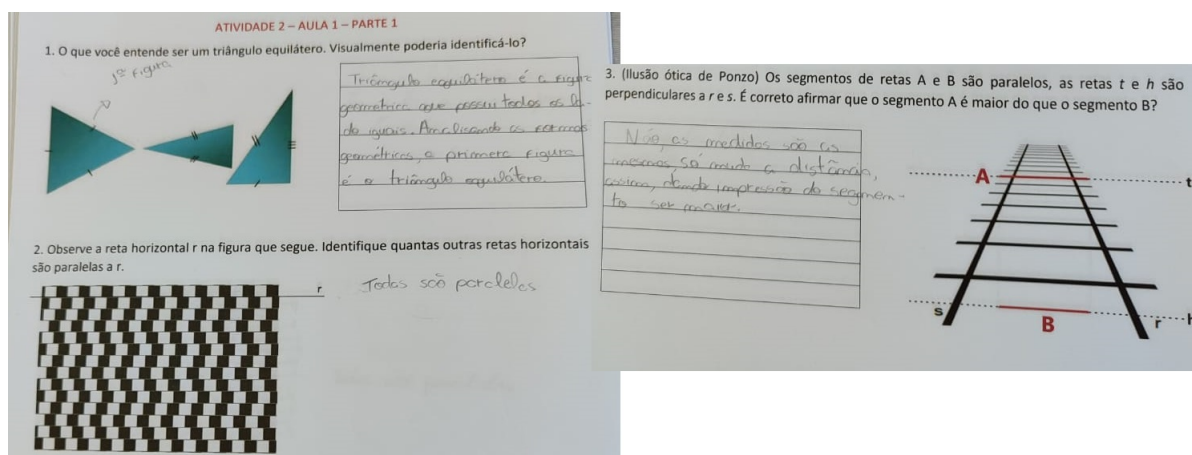 ATIVIDADE 2 – AULA 1 – PARTE 1
1. O que você entende ser um triângulo equilátero. Visualmente poderia identificá-lo?
1ª Figura
Triângulo equilátero é a figura
geometrica que possui todos os la-
do iguais. Analisando as formas
geométricas, a primera figura
é o triângulo equilátero.
2. Observe a reta horizontal r na figura que segue. Identifique quantas outras retas horizontais
são paralelas a r.
r
Todas são paralelas
3. (Ilusão ótica de Ponzo) Os segmentos de retas A e B são paralelos, as retas t e h são
perpendiculares a r e s. É correto afirmar que o segmento A é maior do que o segmento B?
Não, as medidas são as
mesmas só muda a distância,
impressão do segmen-
to ser maior.
A
t
s
B
r
h